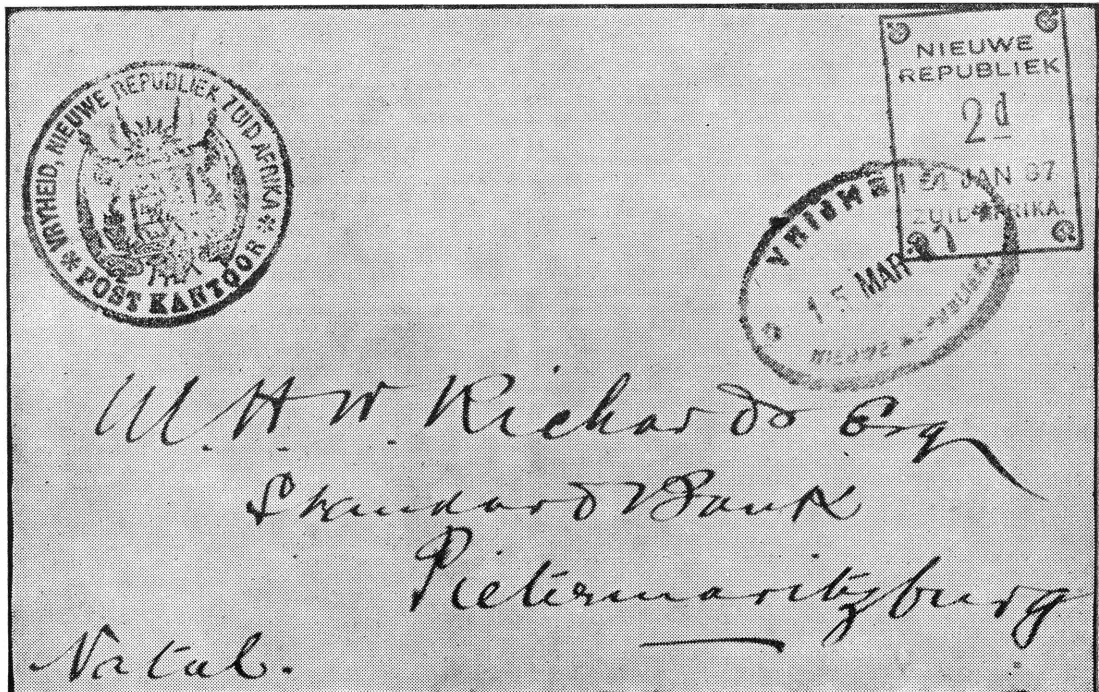 VRYHEID, NIEUWE REPUBLIEK ZUID AFRIKA
POST KANTOOR
NIEUWE
REPUBLIEK
2d
JAN 87
ZUID-AFRIKA.
VRIJHE
15 MAR
NIEUWE REPUBLIEK
M. H. W. Richards Esq
Standard Bank
Pietermaritzburg
Natal.